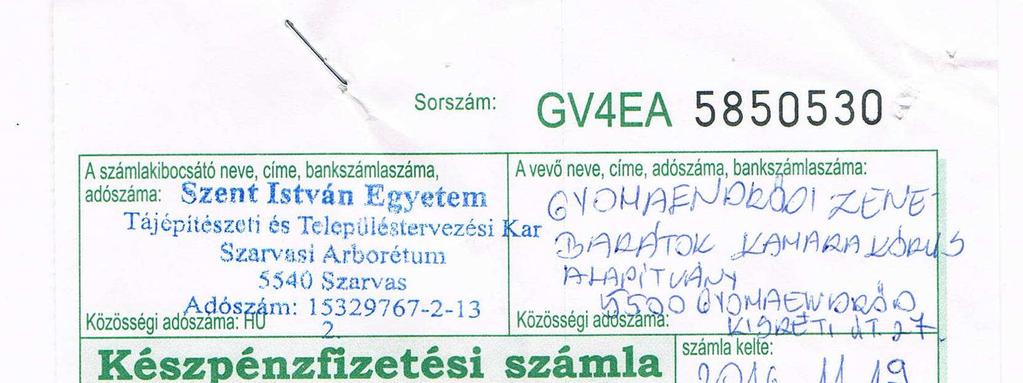 Sorszám: GV4EA 5850530
A számlakibocsátó neve, címe, bankszámlaszáma,
adószáma: Szent István Egyetem
Tájépítészeti és Településtervezési Kar
Szarvasi Arborétum
5540 Szarvas
Adószám: 15329767-2-13
Közösségi adószáma: HU
2.
A vevő neve, címe, adószáma, bankszámlaszáma:
GYOMAENDRŐDI ZENE-
BARÁTOK KAMARA KÓRUS
ALAPÍTVÁNY
5500 GYOMAENDRŐD
Közösségi adószáma:
KISRÉTI ÚT 27.
Készpénzfizetési számla
számla kelte:
2016 11 19